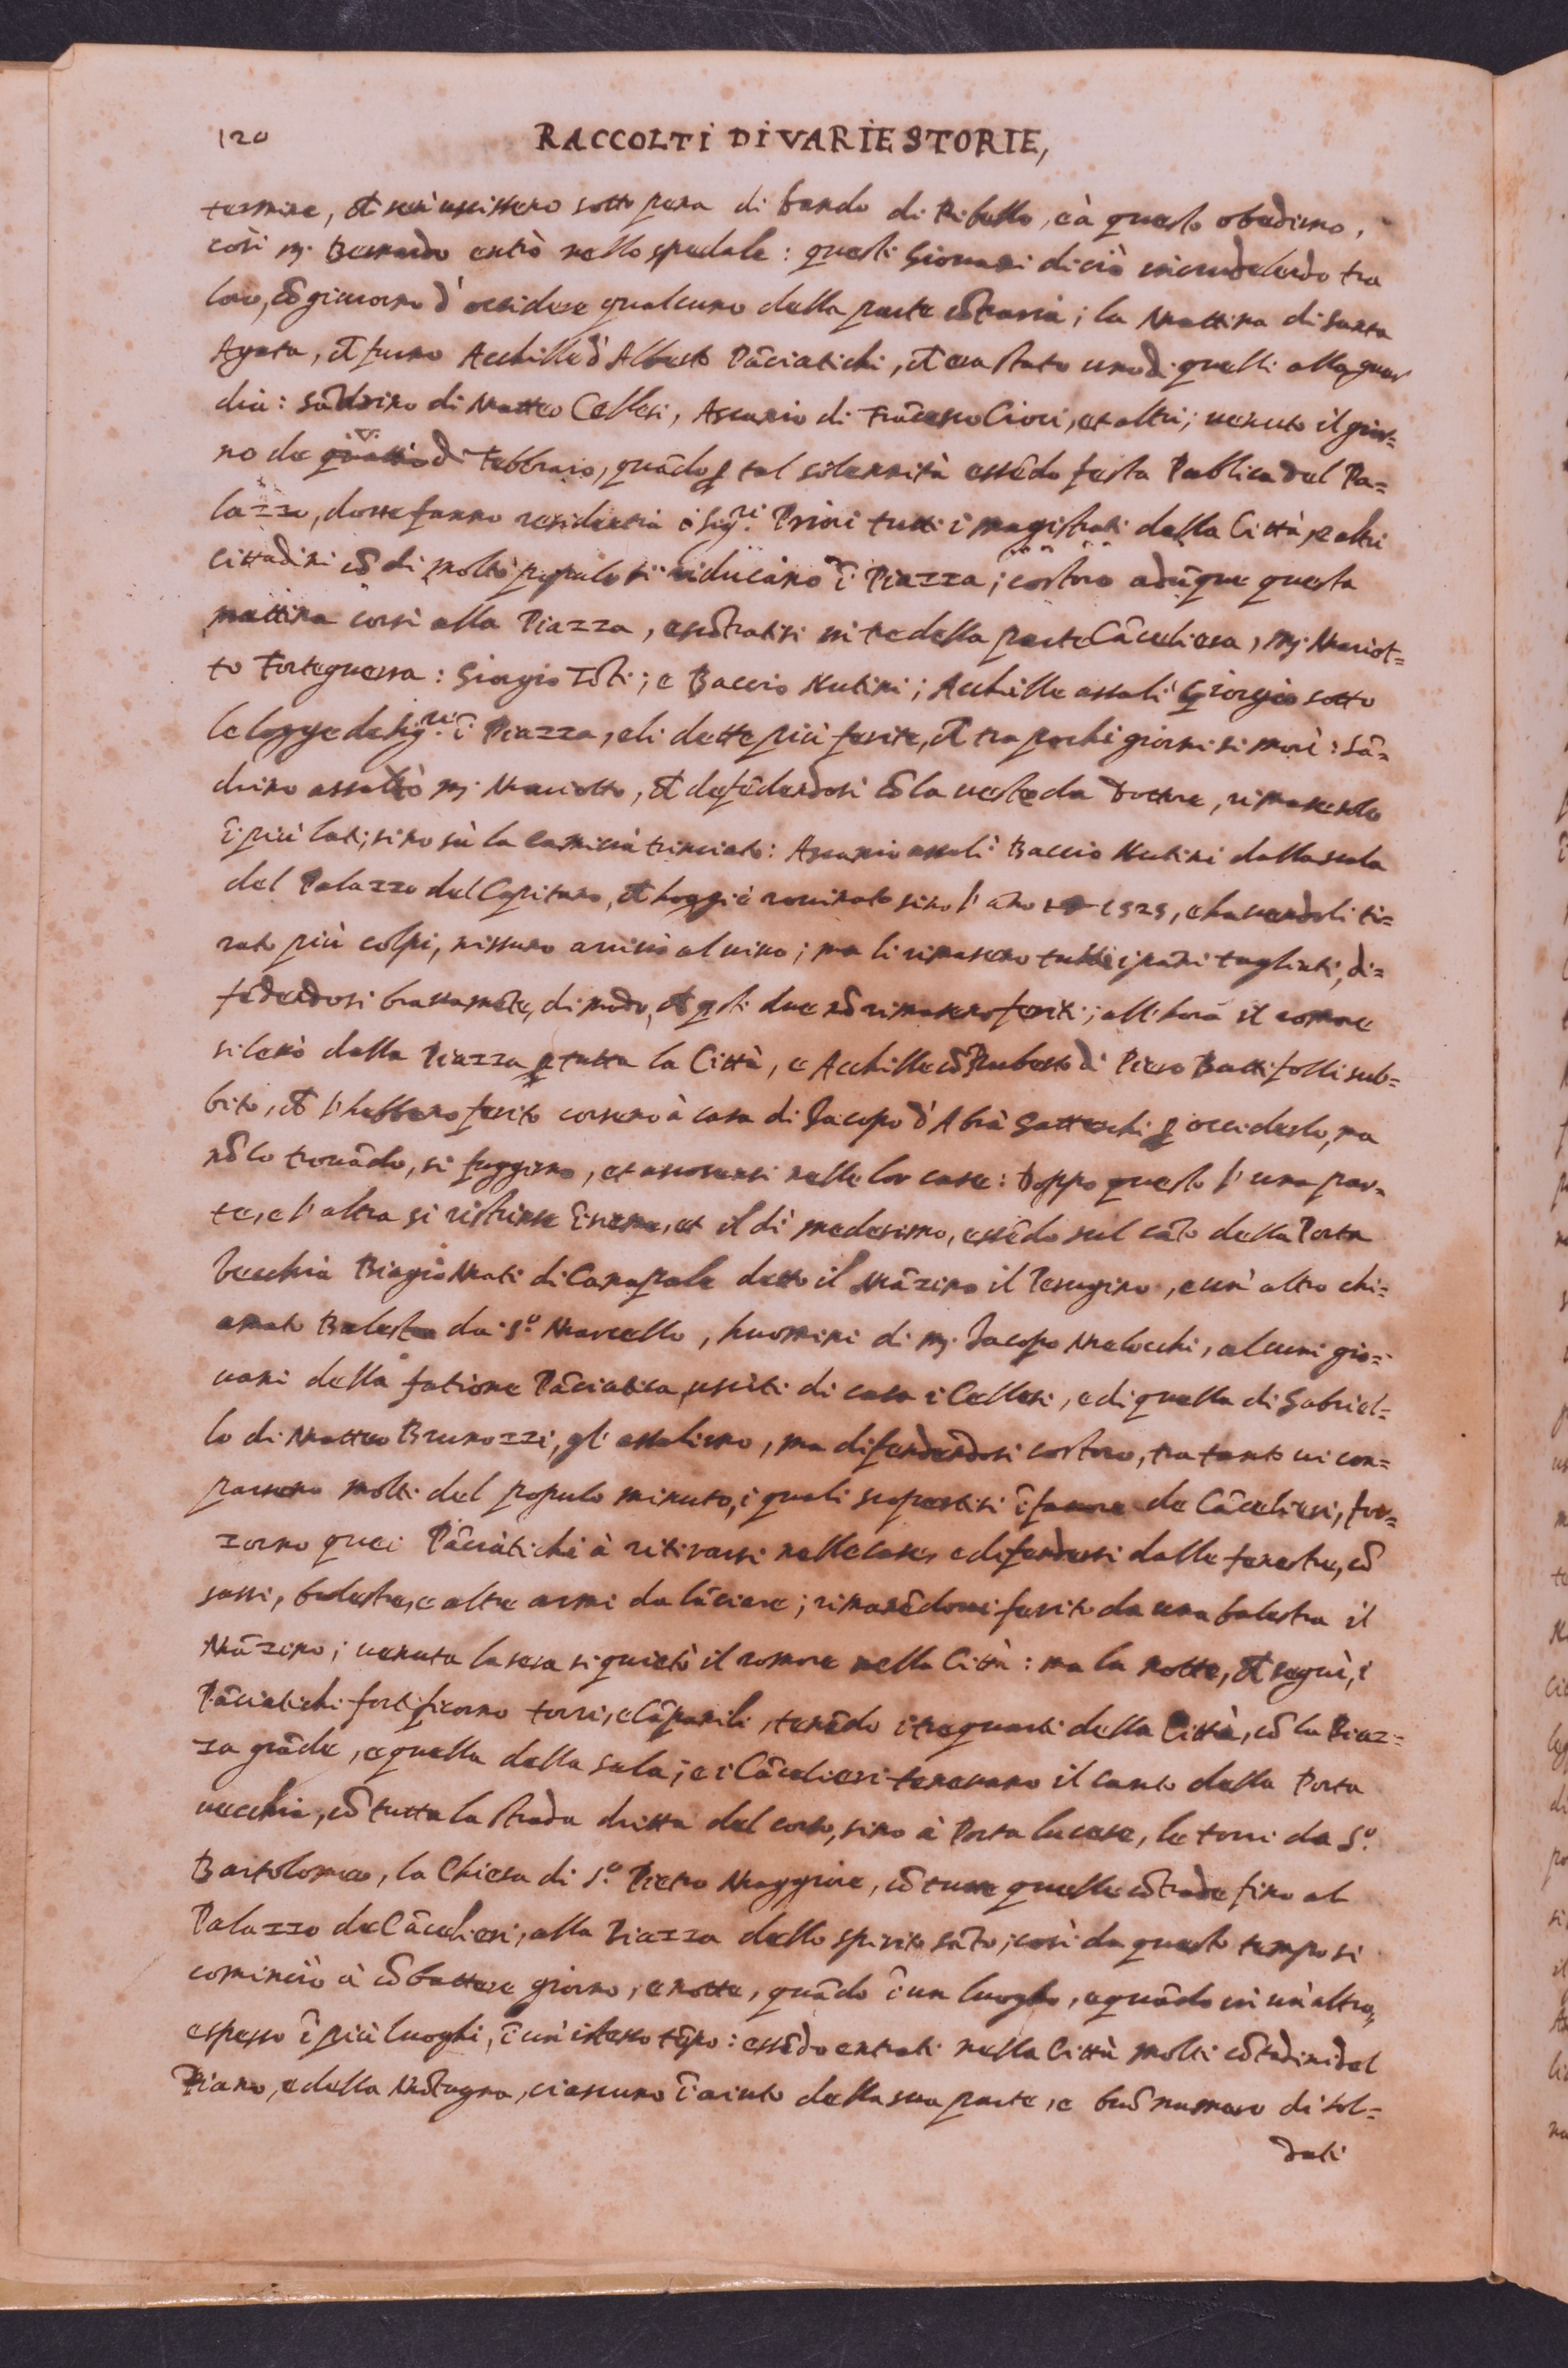 120 RACCOLTI DI VARIE STORIE,
termine, che se n'uscissero sotto pena di bando di Ribello, e à questo obedirno,
così mj. Bernardo entrò nello spedale: questi Giovani di ciò incrudelendo tra
loro, cõgiurorno d'occidere qualcuno della parte cõtraria; la Mattina di Santa
Agata, che furno Acchille d'Alberto Pãciatichi, che era stato uno di quelli alla guar
dia: Sãdrino di Matteo Cellesi, Ascanio di Frãcesco Cioci, et altri; uenuto il gior=
no de di Febbraio, quãdo ꝑ tal solennità essẽdo festa Publica del Pa=
lazzo, doue fanno residentia i Sig.ri Priori tutti i magistrati della Città, e altri
cittadini cõ di molto populo si riducano ĩ Piazza; costoro adũque questa
mattina corsi alla Piazza, e scõtratisi in tre della parte Cãceliera, mj. Mariot=
to Forteguerra: Giorgio Tõti; e Baccio Nutini; Acchille assalì Giorgio sotto
le logge de Sig.ri ĩ Piazza, e li dette più ferite, che tra pochi giorni si morì: Sã=
drino assaltò mj. Mariotto, che defẽdendosi cõ la ueste da Dottore, rimase solo
ĩ più lati, sino sù la camicia trinciato: Ascanio assalì Baccio Nutini dalla scala
del Palazzo del Capitano, che hoggi è rouinato sino l'año 1525, e hauendoli ti=
rato più colpi, nissuno arriuò al uiuo; ma li rimasero tutti i pãni tagliati, di=
fẽdendosi brauamẽte, di modo, che q̃sti due nõ rimasero feriti; all'hora il romore
si leuò dalla Piazza ꝑ tutta la Città, e Acchille cõ Ruberto di Piero Battifolli sub=
bito, che l'hebbero ferito corsero à casa di Iacopo d'Abrà Gatteschi ꝑ occiderlo, ma
nõ lo trouãdo, si fuggirno, et ascosersi nelle lor case: Doppo questo l'una par=
te, e l'altra si ristrinse ĩsieme, et il dì medesimo, essẽdo sul cãto della Porta
Vecchia Biagio Mati di Canapale detto il Mãzino il Perugino, e un' altro chi=
amato Balestra da S.o Marcello, huomini di mj. Iacopo Melocchi, alcuni gio=
uani della fatione Pãciatica, usciti di casa i Cellesi, e di quella di Gabriel=
lo di Matteo Brunozzi, gl' assalirno, ma difendendosi costoro, tra tanto ui con=
parsero molti del populo minuto, i quali scopertisi ĩ fauore de Cãcelieri, for=
zorno quei Pãciatichi à ritirarsi nelle case, e difendersi dalle fenestre, cõ
sassi, balestre, e altre armi da lãciare; rimanẽdoui ferito da una balestra il
Mãzino; uenuta la sera si quietò il romore nella Città: ma la notte, che seguì, i
Pãciatichi fortificorno torri, e cãpanili, tenẽdo i tre quarti della Città, cõ la Piaz=
za grãde, e quella della Sala; e i Cãcelieri teneuano il canto della Porta
uecchia, cõ tutta la strada dritta del corso, sino à Porta lucese, le torri da S.o
Bartolomeo, la Chiesa di S.o Pietro Maggiore, cõ tutte quelle cõtrade fino al
Palazzo de Cãcelieri, alla Piazza dello spirito sãto; così da questo tempo si
cominciò à cõbattere giorno, e notte, quãdo ĩ un luogho, e quãdo in un' altro,
e spesso ĩ più luoghi, ĩ un' istesso tẽpo: essẽdo entrati nella Città molti cõtadini del
Piano, e della Mõtagna, ciascuno ĩ aiuto della sua parte, e buõ numero di sol=
dati